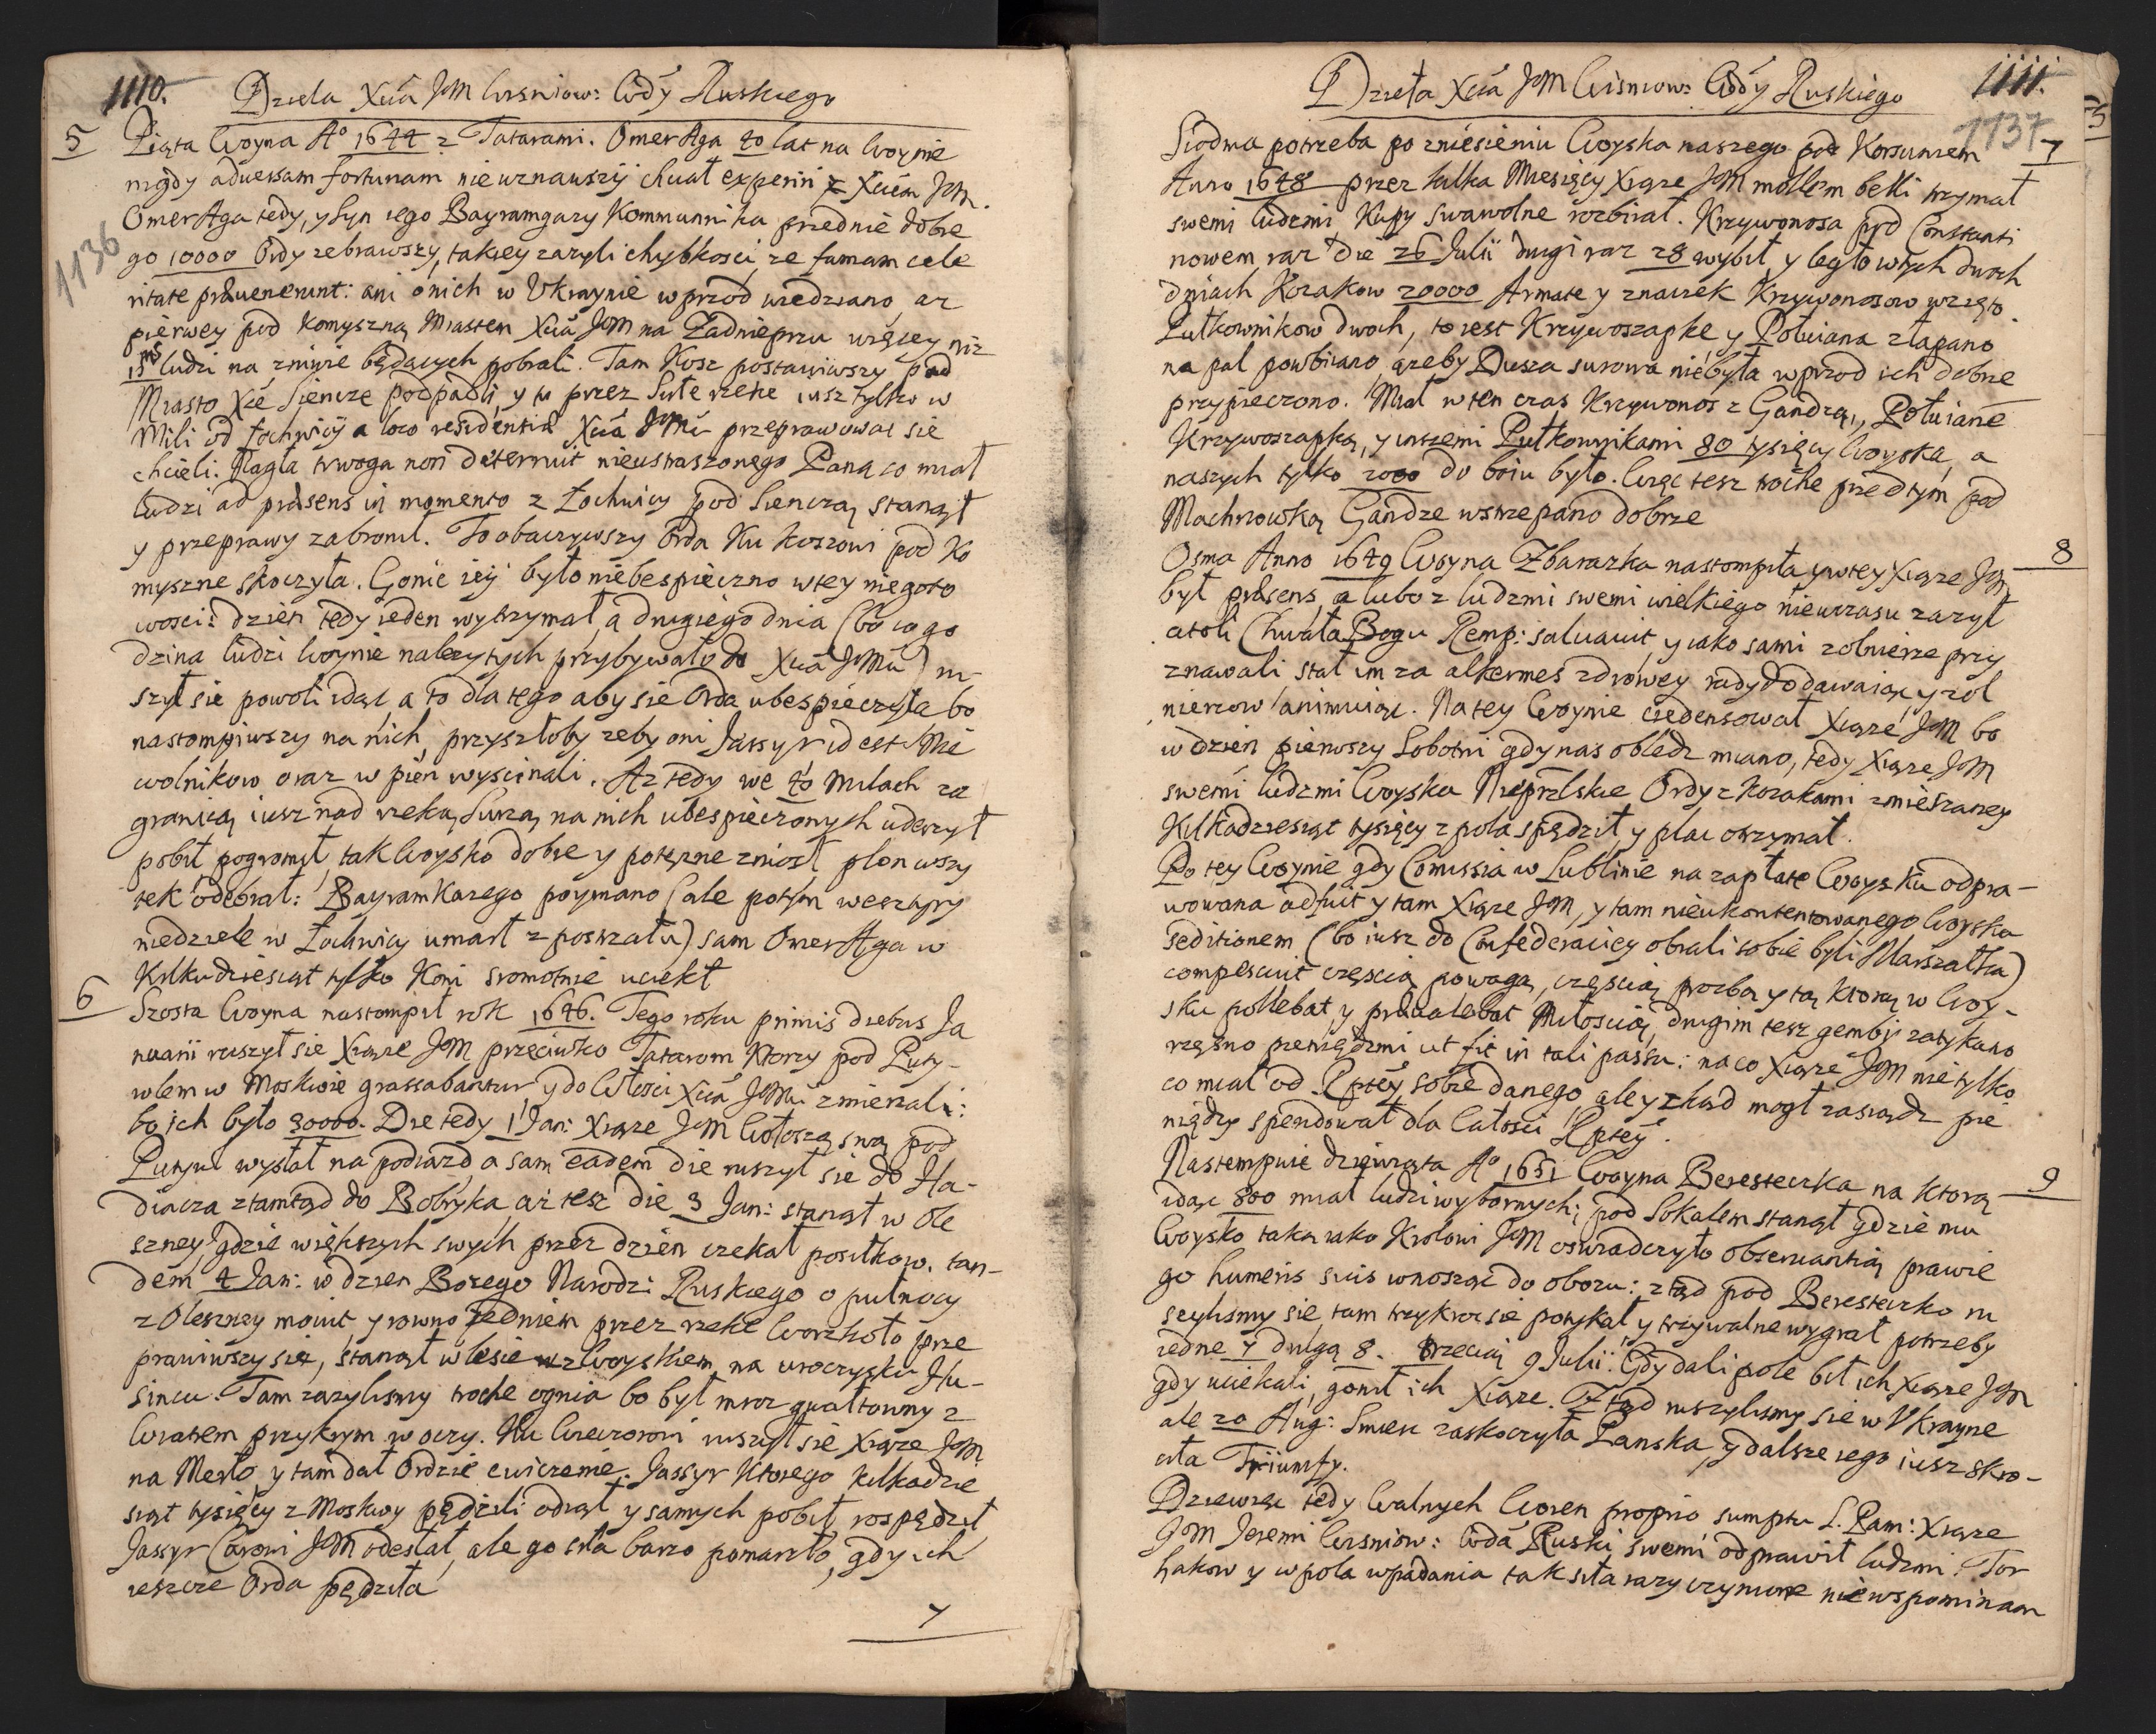 1110. Dzieła Xcia JM Wisniow: Wdy Ruskiego
5 Piąta Woyna A° 1644 z Tatarami. Omer Aga 40 lat na Woynie
nigdy aduersam fortunam nie uznawszÿ chciał experiri z Xciem JM.
Omer Aga tedy, y Syn iego Bayramgazy Kommunnika przednie dobre
1136
go 10000 Ordy zebrawszy, takiey zazyli chybkosci, ze famam cele
ritate præuenerunt: ani o nich w Vkraynie wprzod wiedziano, az
pierwey pod Komyszną Miastem Xcia JM na Zadnieprzu więcey niz
ludzi na zniwie będących pobrali. Tam Kosz postawiwszy pod
Miasto Xcé Siencze podpadli, y tu przez Sułe rzeke iusz tylko w
Mili od Łochwicÿ a loco residentiæ Xcia JMci przeprawować się
chcieli. Nagła trwoga non deterruit nieustraszonego Pana, co miał
ludzi ad præsens in momento z Łochwicy pod Sienczą stanął
y przeprawy zabronił. To obaczywszy Orda Ku koszowi pod Ko
myszne skoczyła. Gonić ieÿ było niebespieczno w tey niegoto
wosci: dzien tedy ieden wytrzymał, a drugiego dnia (bo co go
dzina ludzi Woynie nalezytych przybywało do Xcia JMci) ru-
szył się powoli idąc a to dla tego aby sie Orda ubespieczyła bo
nastompiwszy na nich, przyszłoby zeby oni Jassyr id est Nie
wolnikow oraz w pien wyscinali. Az tedy we 40 Milach za
granicą iusz nad rzeką Surą, na nich ubespieczonych uderzył
pobił pogromił, tak Woysko dobre y potęzne zniosł plon wszy
tek odebrał: Bayramkazego poymano (ale potym we sztyry
niedziele w Łochwicy umarł z postrzału) sam Omer Aga w
Kilkudziesiąt tylko Koni sromotnie uciekł
6 Szosta Woyna nastompił rok 1646. Tego roku primis diebus Ja
nuarii ruszył sie Xiąze JM przeciwko Tatarom Ktorzy pod Puty-
wlem w Moskwie grassabantur, y do Włosci Xcia JMci zmierzali:
bo ich było 30000. Die tedy 1 Jan: Xiąze JM Wołoszą swą pod
Putywl wysłał na podiazd a sam eadem die ruszył się do Ha-
diacza ztamtąd do Bobryka az tesz die 3 Jan: stanął w Ole
szney, gdzie większych swych przez dzien czekał posiłkow. tan-
dem 4 Jan: w dzien Bozego Narodz: Ruskiego o pułnocy
z Oleszney mouit, y rowno ze dniem przez rzekę Worskło prze
prawiwszy się, stanął w lesie z Woyskiem na uroczysku Hu-
sincu. Tam zazylismy troche ognia bo był mroz gwałtowny z
Wiatem przykrym w oczy. Ku Wieczorowi ruszył się Xiąze JM
na Merło, y tam dał Ordzie cwiczenie. Jassyr Ktorego kilkadzie
siąt tysięcy z Moskwy pędzili odiął y samych pobił, rospędził
Jassyr Carowi JM odesłał, ale go siła barzo pomarzło, gdy ich
ieszcze Orda pędziła
7
Dzieła Xcia JM Wisniow: Wdy Ruskiego 1111.
1137
Siodma potrzeba po zniesieniu Woyska naszego pod Korsuniem 7
Anno 1648 przez kilka Miesięcy Xiąze JM molem belli trzymał
swemi ludzmi, Kupy swawolne rozbirał. Krzywonosa pod Constanti
nowem raz die 26 Julii drugi raz 28 wybił, y legło w tych dwoch
dniach Kozakow 20000 Armate y znaczek Krzywonosow wzięto
Pułkownikow dwoch, to iest Krzywoszapke, y Połuiana złapano
na pal powbiiano, azeby Dusza surowa niebyła wprzod ich dobrze
przypieczono. Miał w ten czas Krzywonos z Gandzą, Połuianē
Krzywoszapką, y inszemi Pułkownikami 80 tysięcy Woyska, a
naszych tylko 2000 do boiu było. Więc tesz troche przedtym pod
Machnowką Gandze wstrzepano dobrze
Osma Anno 1649 Woyna Zbarazka nastompiła, y w tey Xiąze JM 8
był præsens, a lubo z ludzmi swemi wielkiego niewczasu zazył
atoli Chwała Bogu Remp: saluauit, y iako sami zolnierze przy
znawali stał im za alkermes zdrowey rady dodawaiąc, y zoł
nierzow animuiąc. Na tey Woynie credensował Xiąze JM bo
w dzien pierwszy Sobotni gdy nas obledz miano, tedy Xiąze JM
swemi ludzmi Woyska Nieprzelskie Ordy z Kozakami zmieszaney
Kilkadziesiąt tysięcy z pola spędził, y plac otrzymał.
Po tey Woynie gdy Comissia w Lublinie na zapłate Woysku odpra-
wowana adfuit y tam Xiąze JM, y tam nieukontentowanego Woyska
seditionem (bo iusz do Confederaciey obrali sobie byli Marszałka)
compescuit częscią powagą, częscią prozbą y tą ktorą w Woy-
sku pollebat, y præualebat Miłoscią, drugim tesz gemby zatykano
rzęsno pieniędzmi ut fit in tali passu: na co Xiąze JM nie tylko
co miał od Rptey sobie danego, ale y zkąd mogł zasiądz pie
niędzy spendował dla Całosci Rptey.
Nastempuie dziewiąta A° 1651 Woyna Beresteczka na ktorą 9
idąc 800 miał ludzi wybornych; pod Sokalem stanął gdzie mu
Woysko taką iako Krolowi JM oswiadczyło obseruantią prawie
go humeris suis wnosząc do obozu: ztąd pod Beresteczko ru
szylismy się, tam trzykroc się potykał y trzy walne wygrał potrzeby
iedne 7 drugą 8. trzecią 9 Julii. Gdy dali pole bił ich Xiąze JM
gdy uciekali, gonił ich Xiąze. Ztąd ruszylismy sie w Vkrayne
ale 20 Aug: Smierc zaskoczyła Panska, y dalsze iego iusz skro-
ciła Triumfy.
Dziewięc tedy Walnych Woien proprio sumptu S. Pam: Xiąze
JM Jeremi Wisniow: Wda Ruski, swemi odprawił ludzmi. Tor
hakow y w pola wpadania tak siła razy czynione niewspominam